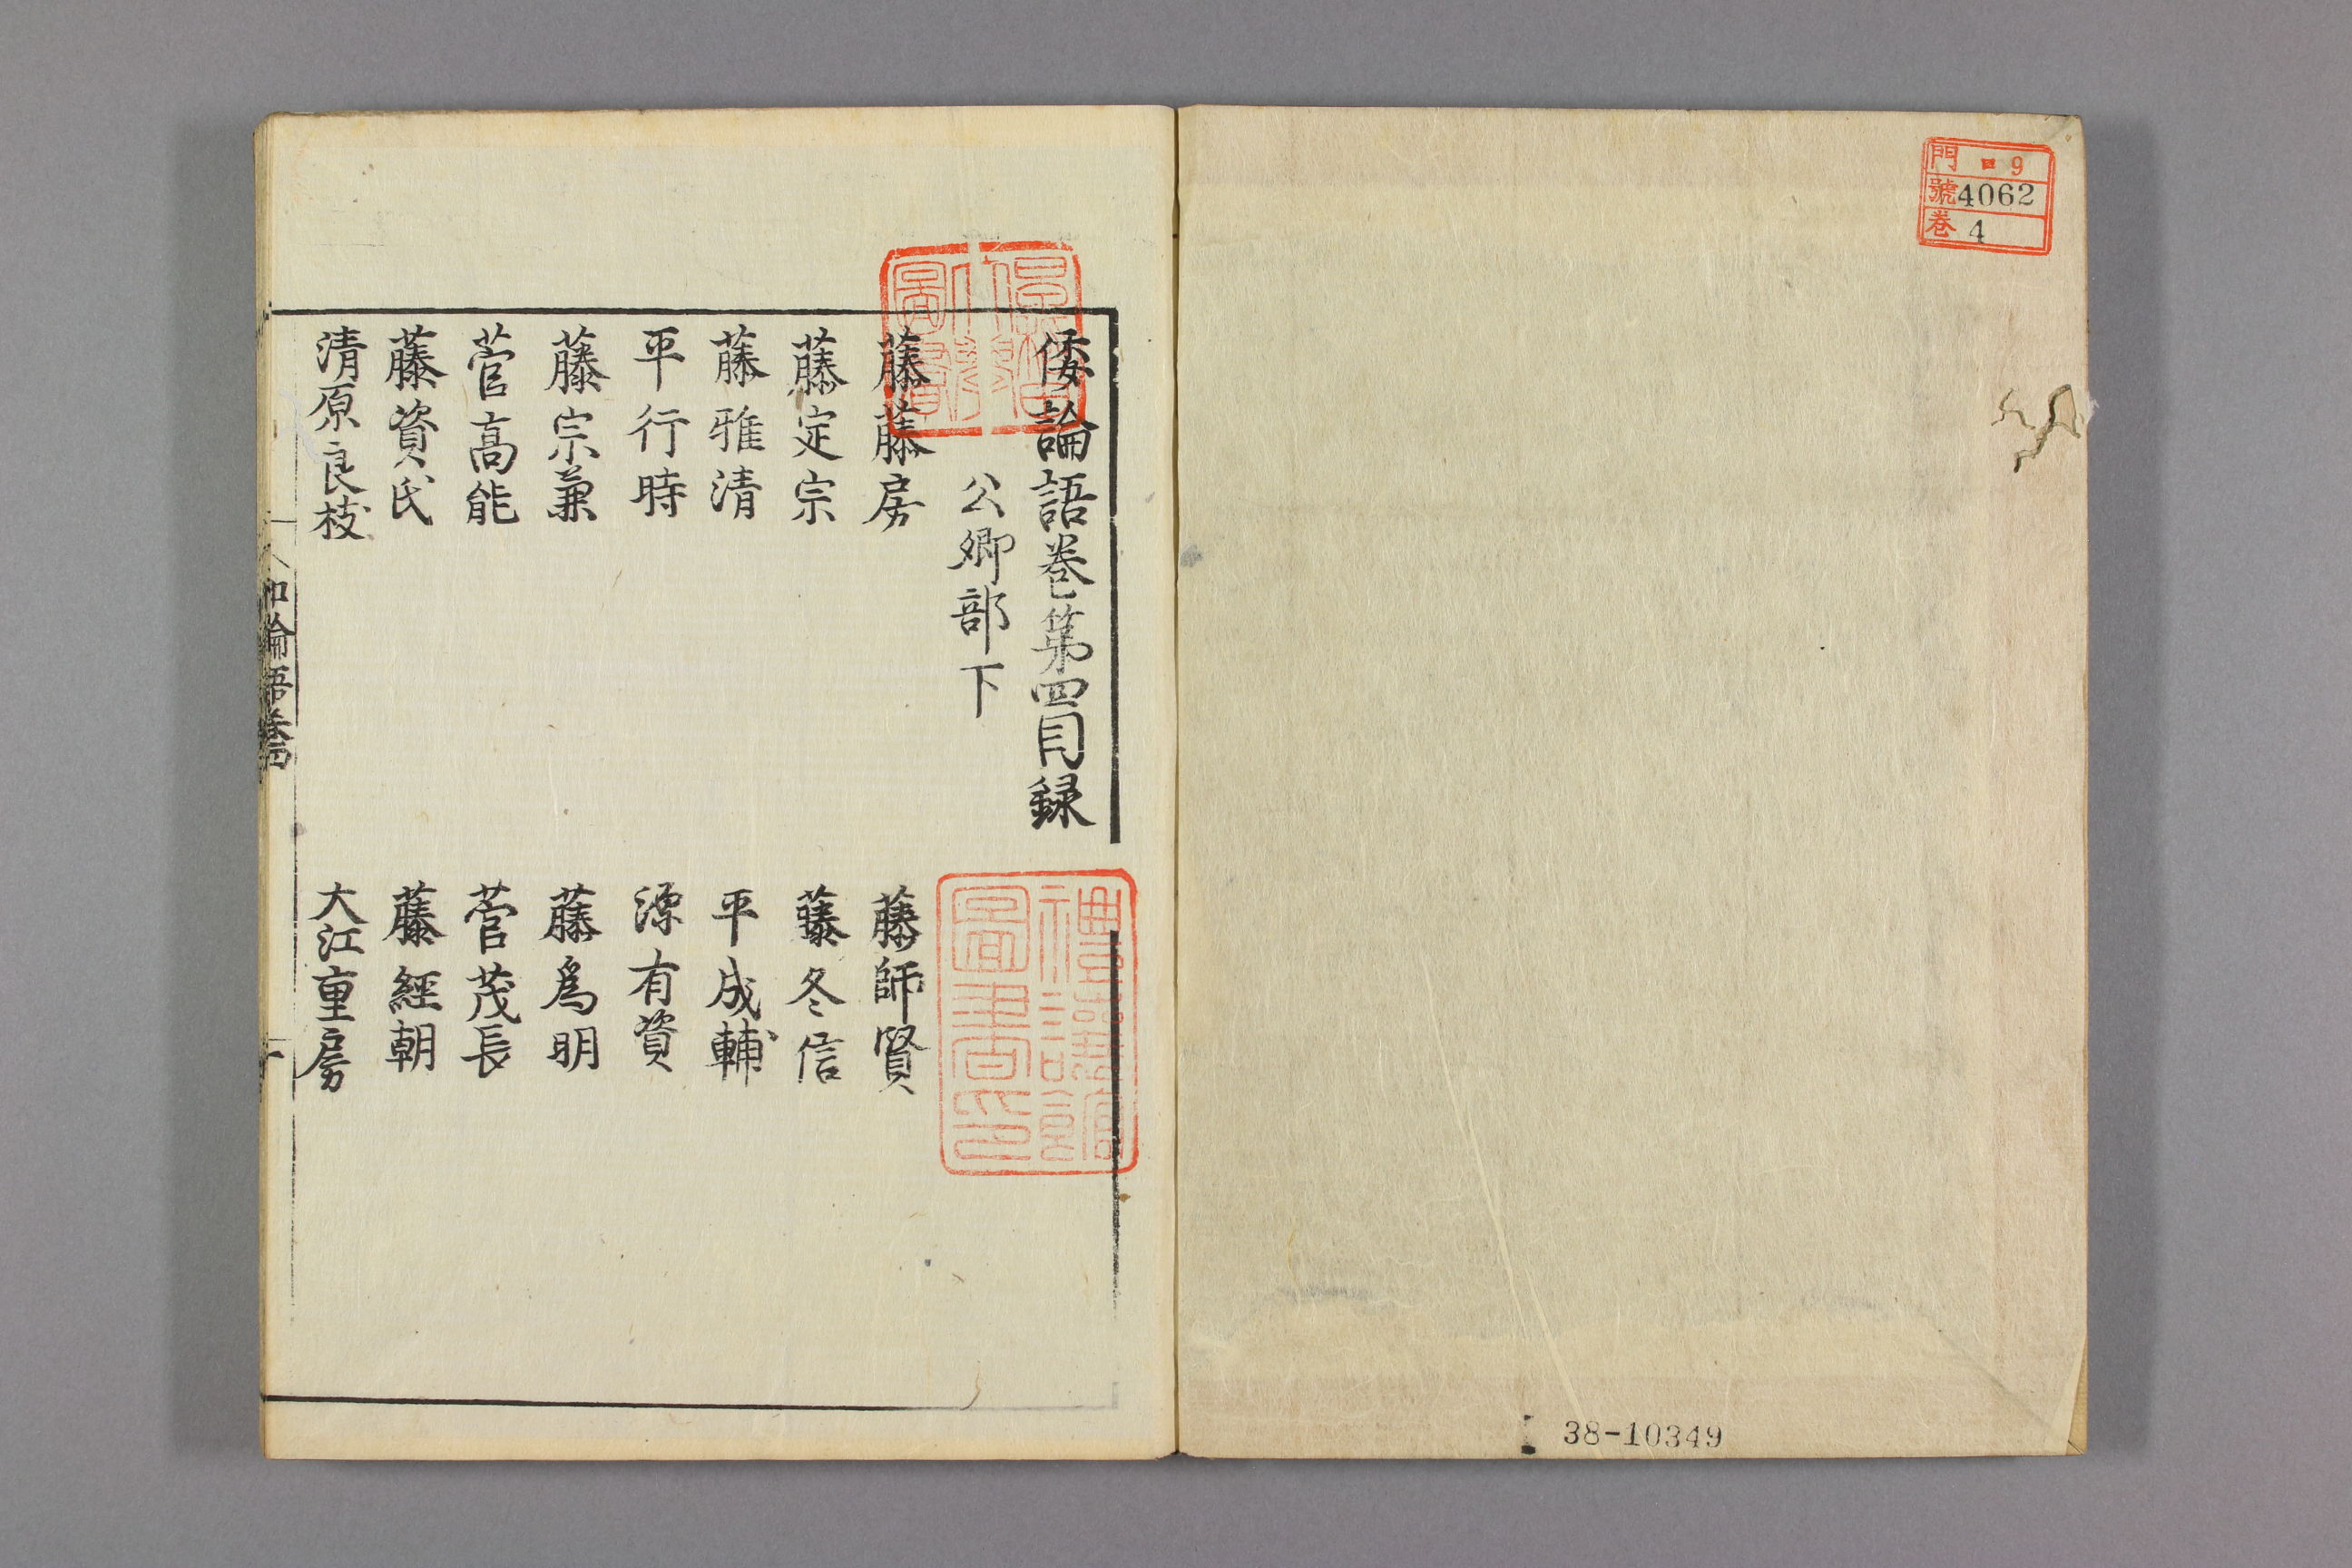 門 9
號 4062
巻 4
38-10349
倭論語巻第四目録
公卿部下
藤藤房 藤師賢
藤定宗 藤冬信
藤雅清 平成輔
平行時 源有資
藤宗兼 藤為明
菅高能 菅茂長
藤資氏 藤經朝
清原良枝 大江重房
和論語巻四